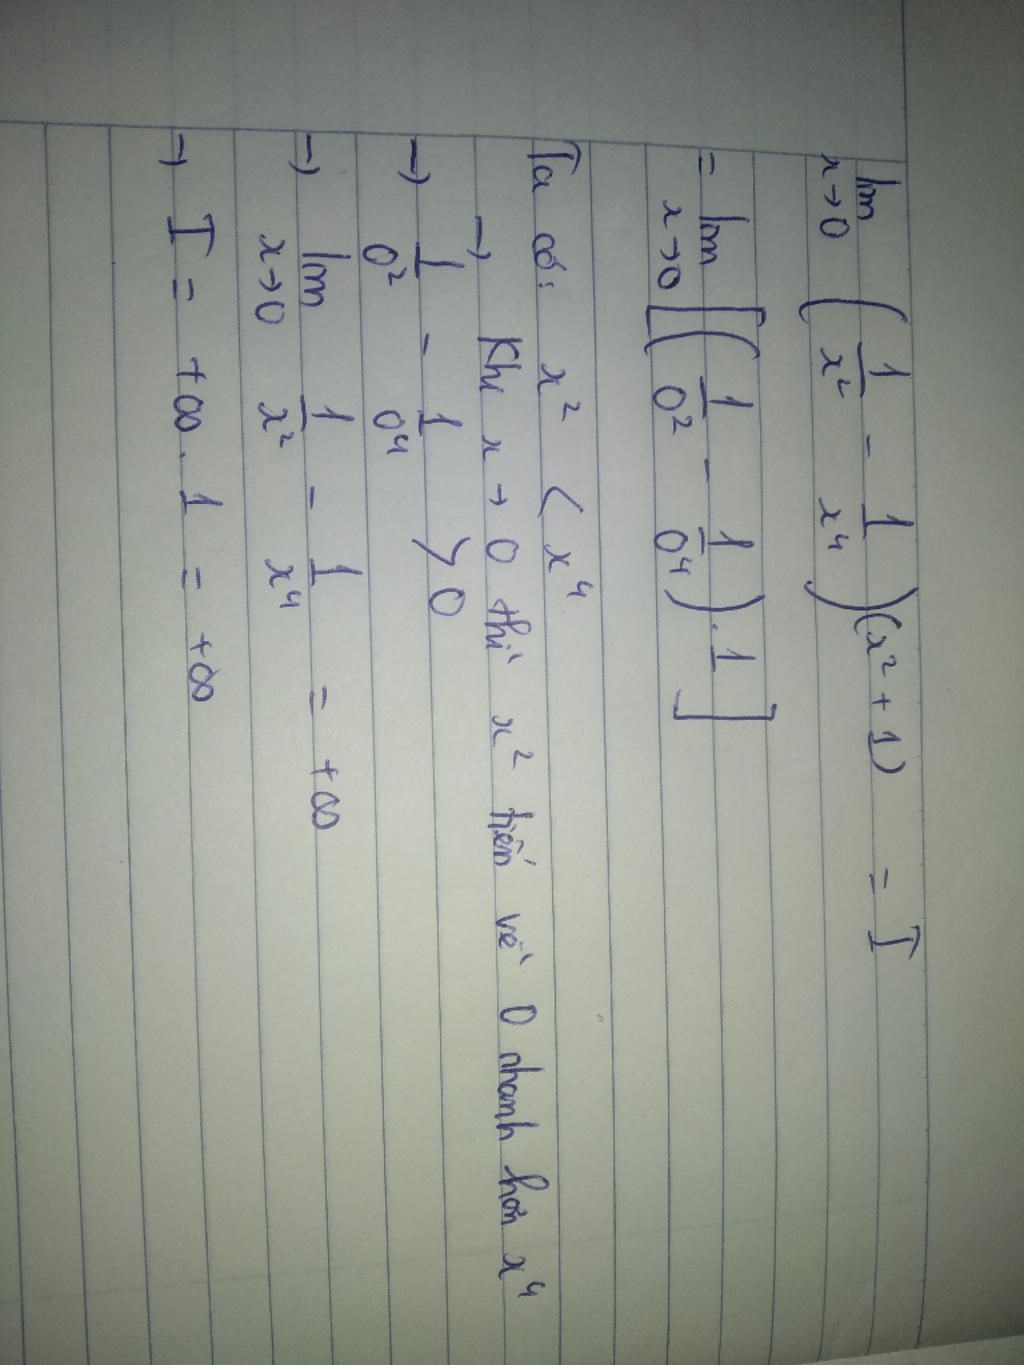 lim x→0 (1/x² - 1/x⁴)(x² + 1) = I
= lim x→0 [(1/0² - 1/0⁴).1]
Ta có: x² < x⁴
→ Khi x → 0 thì x² tiến về 0 nhanh hơn x⁴
→ 1/0² - 1/0⁴ > 0
→ lim x→0 1/x² - 1/x⁴ = +∞
→ I = +∞ . 1 = +∞